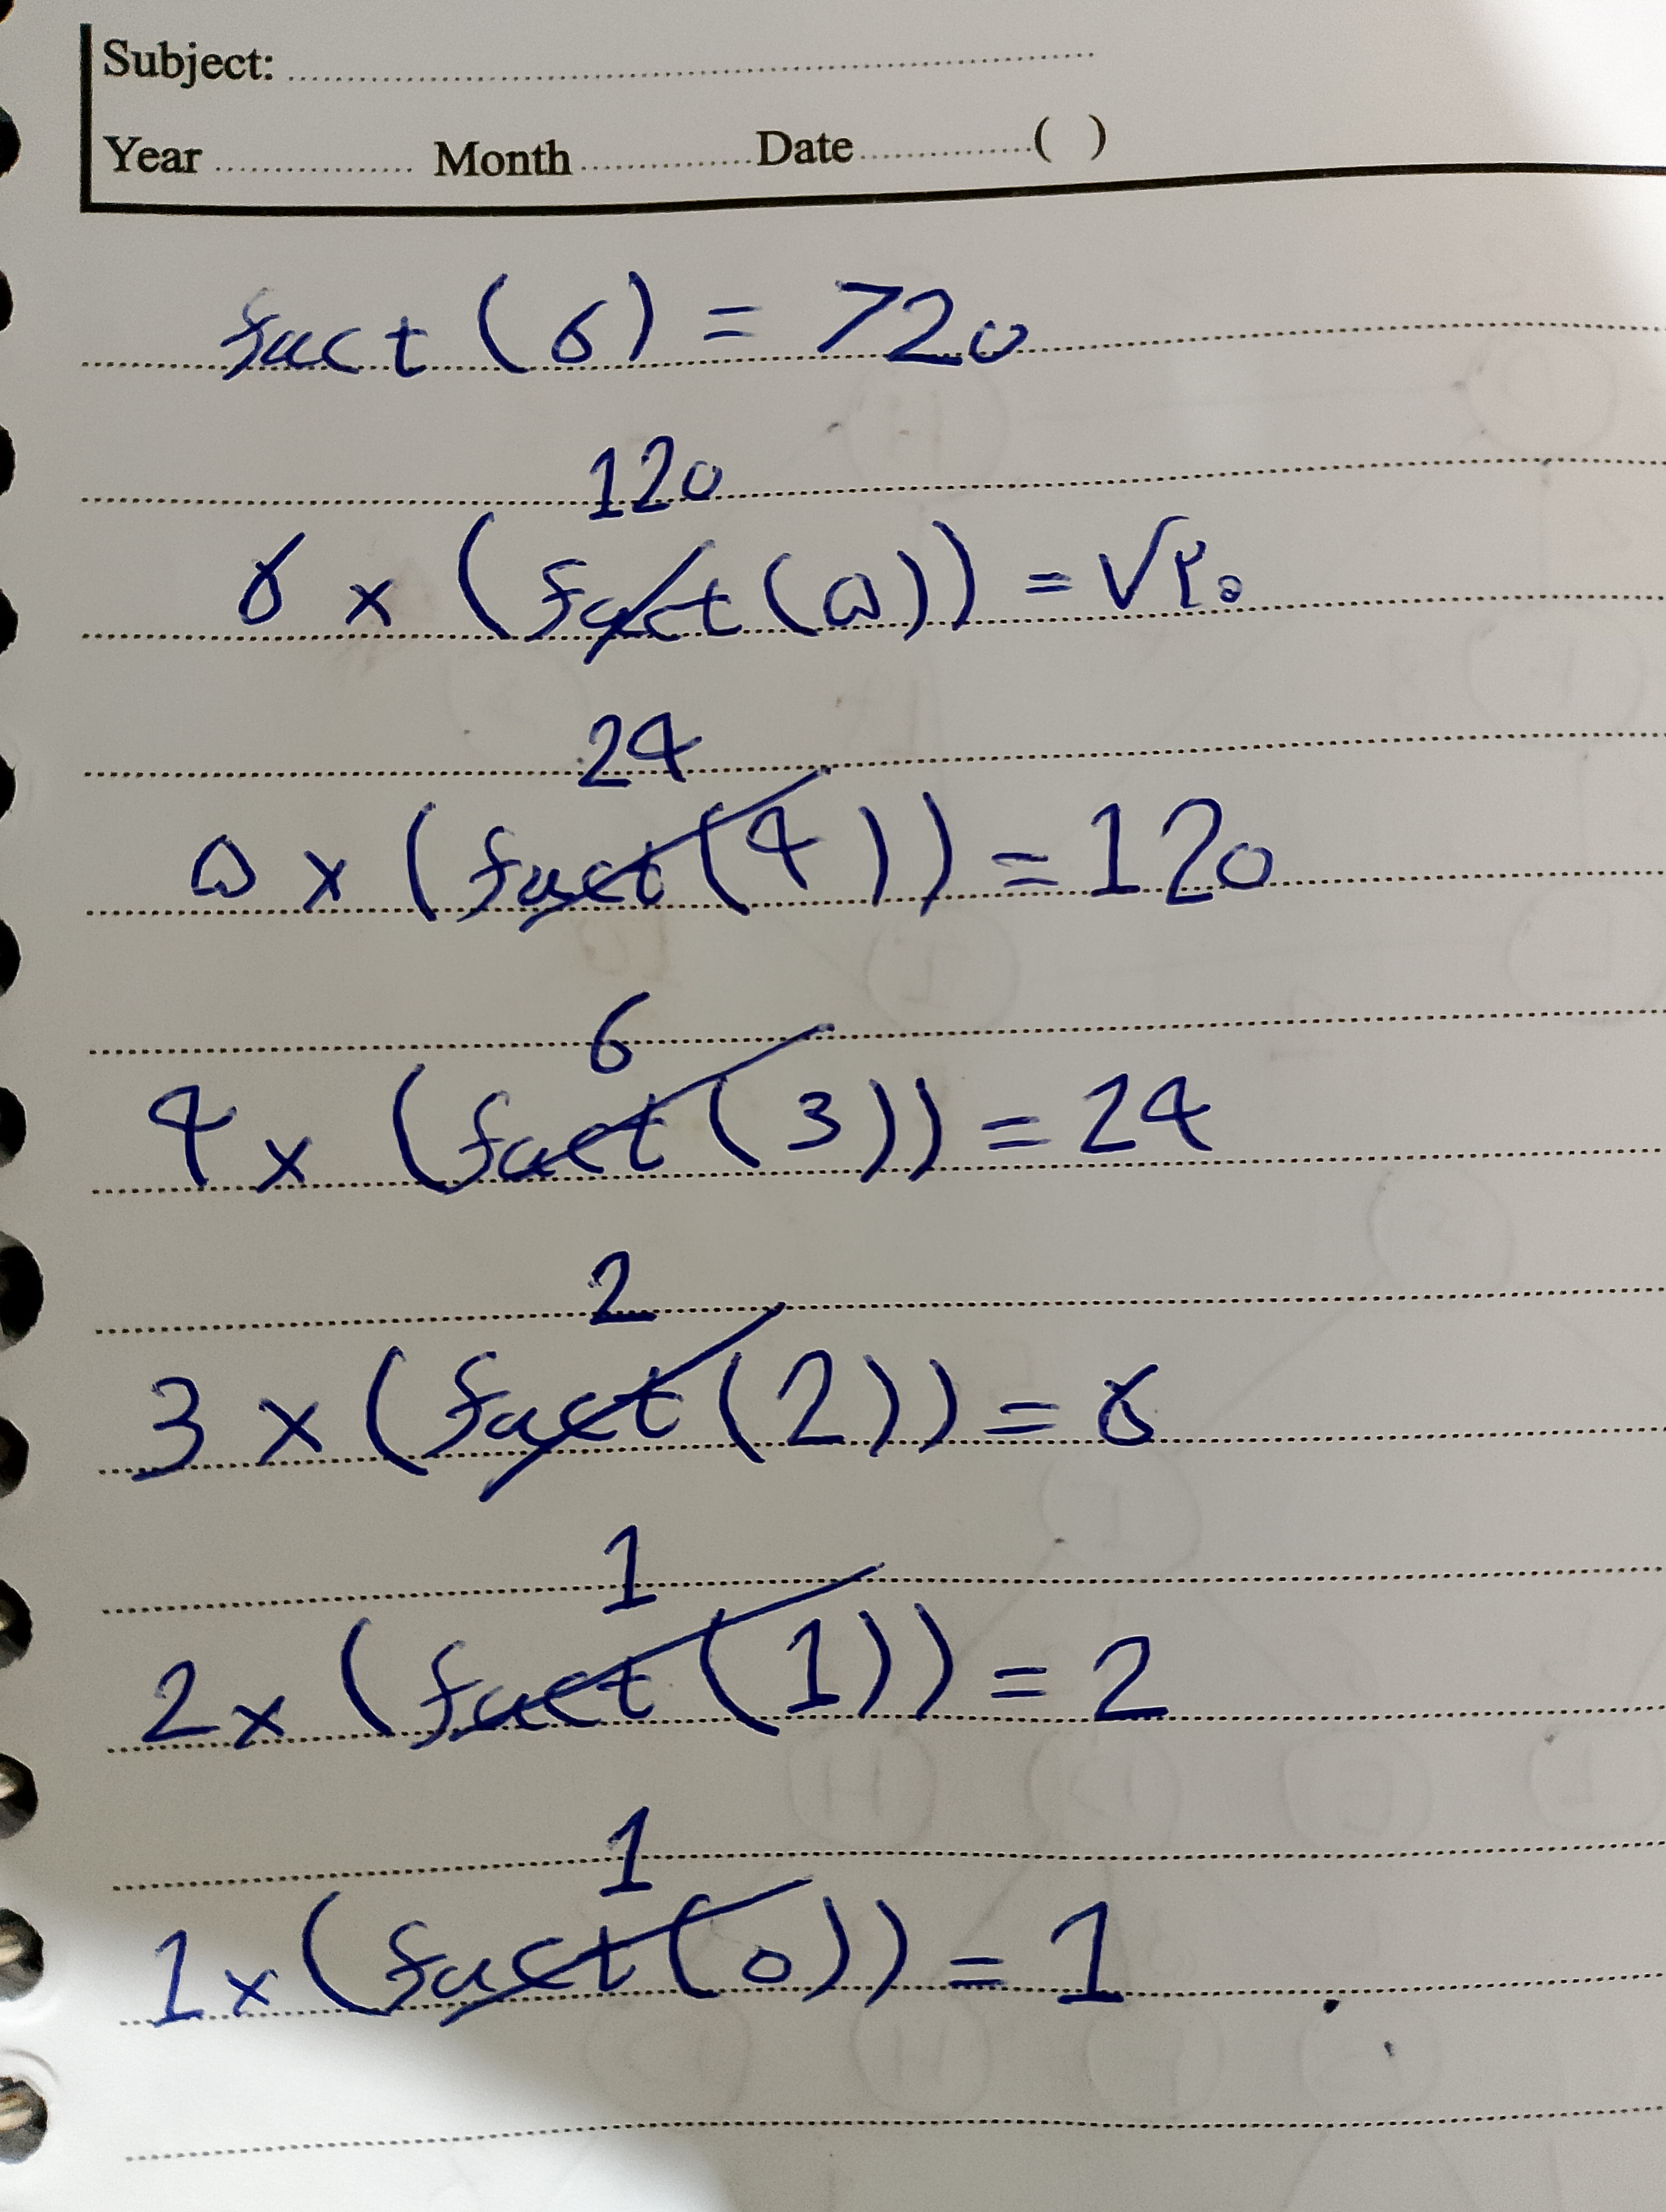 Subject:
Year Month Date ( )
fact (6) = 720
120
6 × (fact (۵)) = ۷۲۰
24
۵ × (fact (4)) = 120
6
4 × (fact (3)) = 24
2
3 × (fact (2)) = 6
1
2 × (fact (1)) = 2
1
1 × (fact (0)) = 1